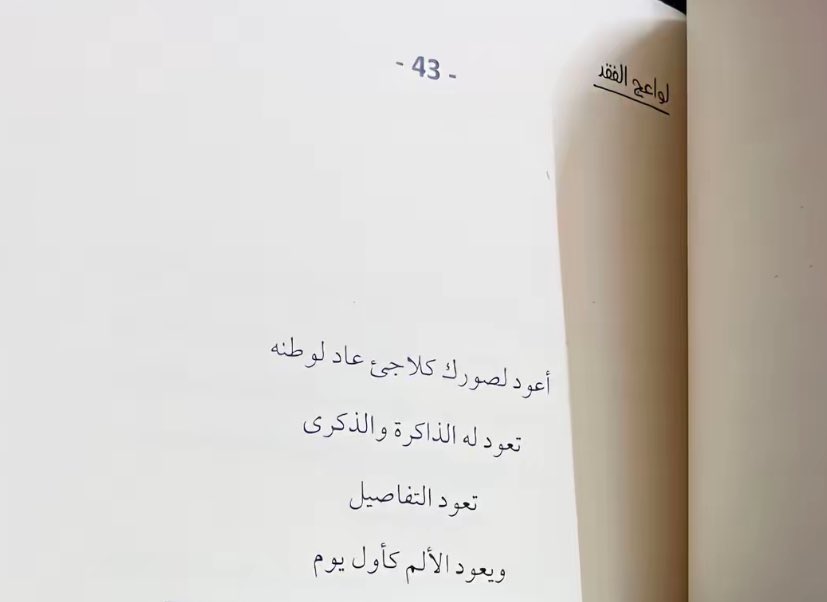 لواعج الفقد
- 43 -
أعود لصورك كلاجئ عاد لوطنه
تعود له الذاكرة والذكرى
تعود التفاصيل
ويعود الألم كأول يوم